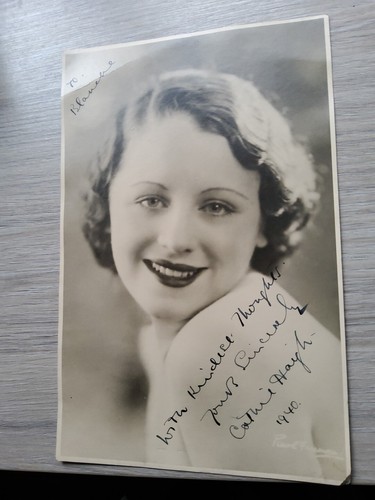 To
Blanche
With Kindest Thoughts.
Yours Sincerely
Cathie Haigh.
1940.